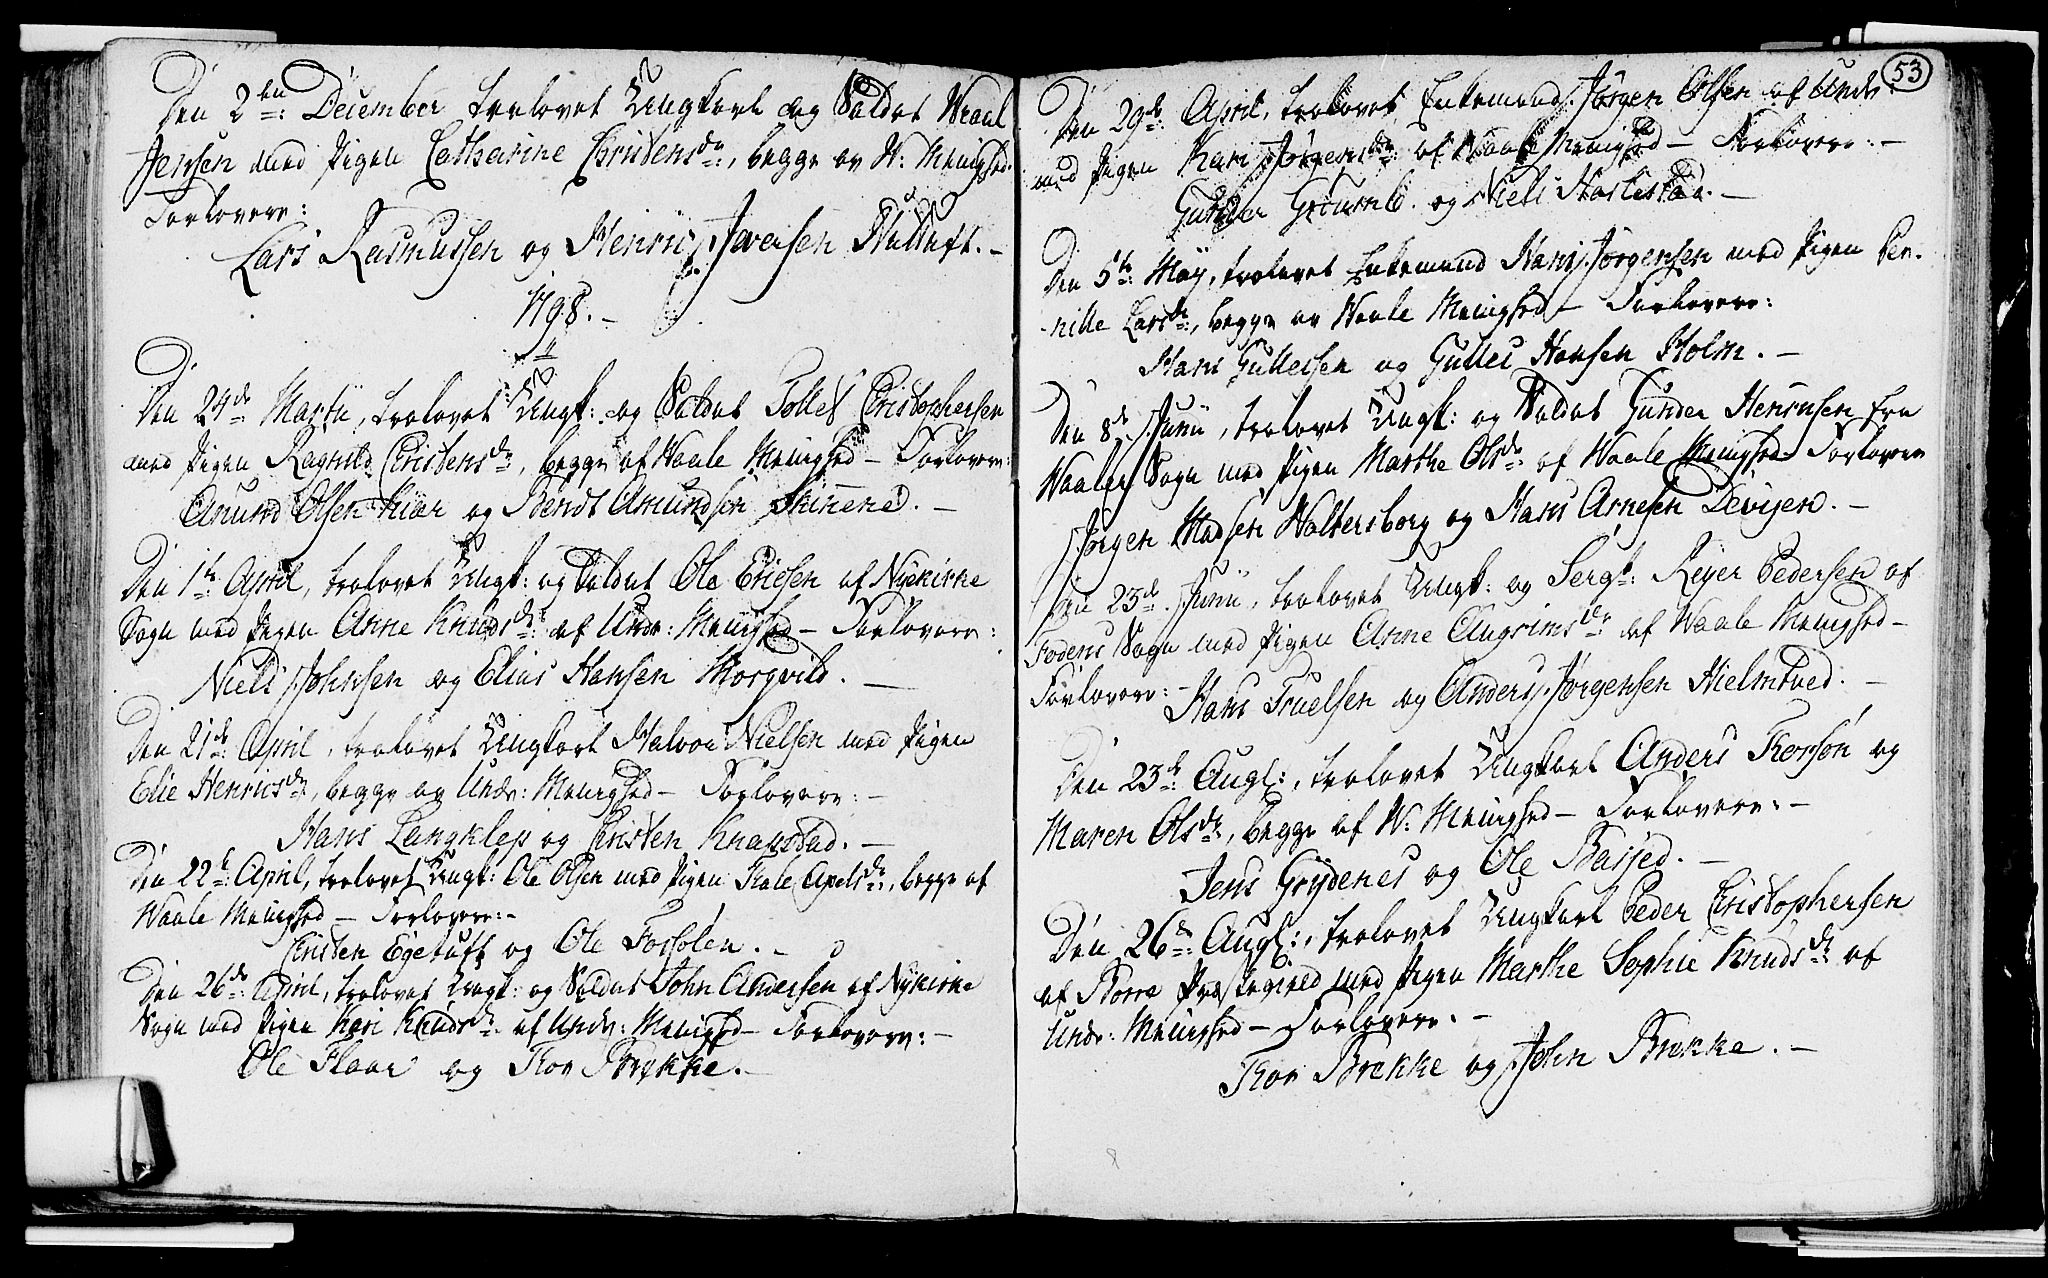 Den 2den December trolovet Ungkarl og Soldat Wraal
Jensen med Pigen Catharine Christensdr, begge av W: Menighed.
Forlovere:
Lars Rasmussen og Henric Iversen Hultuft. –
1798. –
Den 24de Martii, trolovet Ungk: og Soldat Tolles Christophersen
med Pigen Ragnild Christensdr, begge af Waale Menighed – Forlovere:
Anund Olsen Kiær og Bendt Amundsen Skinnene. –
Den 1te April, trolovet Ungk: og Soldat Ole Ericsen af Nykirke
Sogn med Pigen Anne Knudsdr: af Undr: Menighed – Forlovere:
Niels Johnsen og Elias Hansen Morqvild. –
Den 21de April, trolovet Ungkarl Halvor Nielsen med Pigen
Elie Henricsdr, begge av Undr: Menighed – Forlovere: –
Hans Langklep og Christen Knapstad. –
Den 22de April, trolovet Ungk: Ole Olsen med Pigen Kale Apelsdr, begge af
Waale Menighed – Forlovere: –
Christen Egetuft og Ole Fossolen. –
Den 26de April, trolovet Ungk: og Soldat John Andersen af Nykirke
Sogn med Pigen Kari Knudsdr af Undr: Menighed – Forlovere: –
Ole Flaar og Thor Brekke. –
53
Den 29de April, trolovet Enkemand Jørgen Olsen af Undr:
med Pigen Kari Jørgensdr: af Waale Menighed – Forlovere: –
Gunder og Niels –
Den 5te May, trolovet Enkemand Hans Jørgensen med Pigen Per-
nille Larsdr, begge av Waale Menighed – Forlovere:
Hans Gullessen og Gulles Hansen Holm. –
Den 8de Junii, trolovet Ungk: og Soldat Gunder Henricsen fra
Waaler Sogn med Pigen Marthe Olsdr af Waale Menighed Forlovere
Jørgen Madsen Woltersborg og Hans Arnesen Devigen. –
Den 23de Junii, trolovet Ungk: og Sergt: Reyer Pedersen af
Fodens Sogn med Pigen Anne Angrimsdr af Waale Menighed –
Forlovere: – Hans Truelsen og Anders Jørgensen Hielmtved. –
Den 23de Augl:, trolovet Ungkarl Anders Thorsøn og
Maren Olsdr, begge af W: Menighed – Forlovere: –
Jens Grydenes og Ole Basjed. –
Den 26de Augl:, trolovet Ungkarl Peder Christophersen
af Borre Præstegield med Pigen Marthe Sophie Knudsdr af
Undr: Menighed – Forlovere. –
Thor Brekke og John Brekke. –